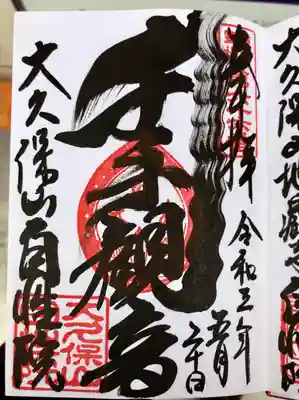 大久保の地蔵尊
自性院
奉拝
令和三年
五月
二十日
千手観音
大久保山自性院
大久保山